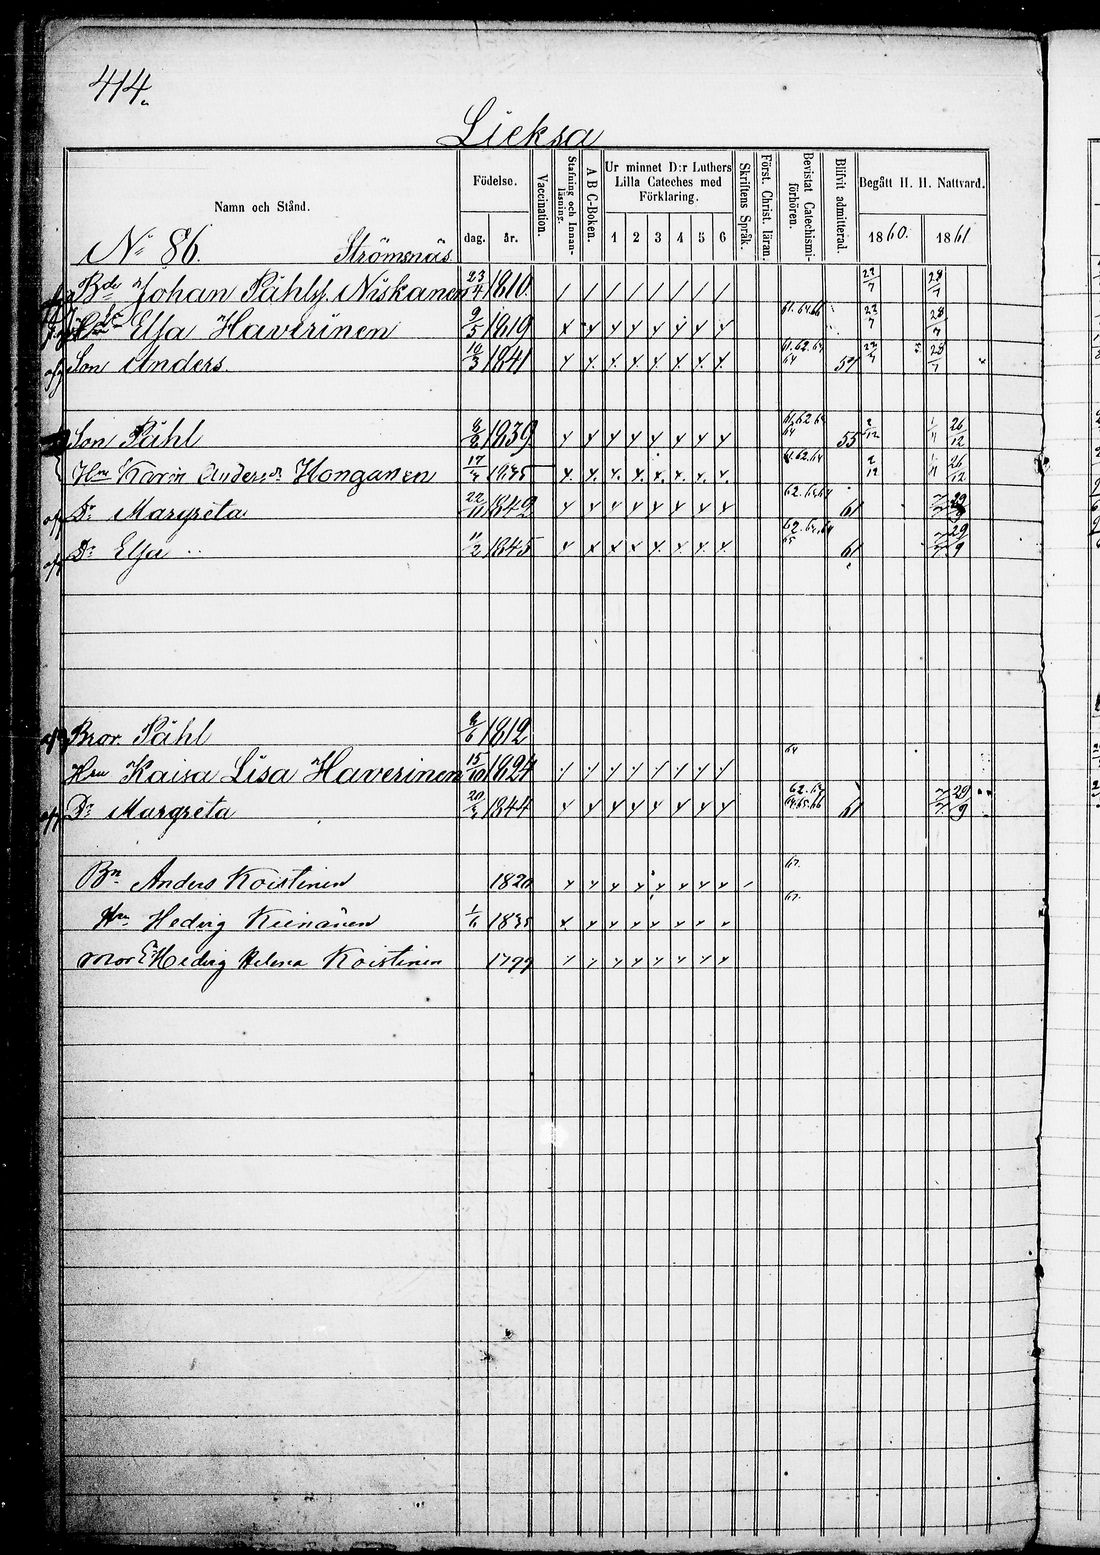 414.
Lieksa
Namn och Stånd.
Födelse.
dag. år.
Vaccination.
Stafning och Innanläsning.
A B C-Boken.
Ur minnet D:r Luthers Lilla Cateches med Förklaring.
1 2 3 4 5 6
Skriftens Språk.
Först. Christ. läran.
Bevistat Catechismiförhören.
Blifvit admitterad.
Begått H. H. Nattvard.
1860. 1861
No 86. Strömsnäs
Bde Johan Påhlsf. Niskanen 23/4 1810 22/7 28/7
Elsa Haverinen 9/5 1819 61.64.66 23/7 28/7
Son Anders. 10/3 1841 61.62.64 64 59 23/7 28/7
Son Påhl 1839 61.62.64 64 55 2/12 1/11 26/12
Hru Karin Andersdr Honganen 17/3 1835 61.62.64 2/12 1/11 26/12
Dr Margreta 22/11 1842 61 29/9
Dr Elsa 11/2 1845 65 61 29/9
Bror. Påhl 1812
Hru Kaisa Lisa Haverinen 15/10 1824 64
Dr Margreta 1844 62.64 64.65.66 61 29/9
Bn Anders Koistinen 1820 67.
Hru Hedvig Keinänen 1/6 1835 67.
Mor E Hedvig Helena Koistinen 1799